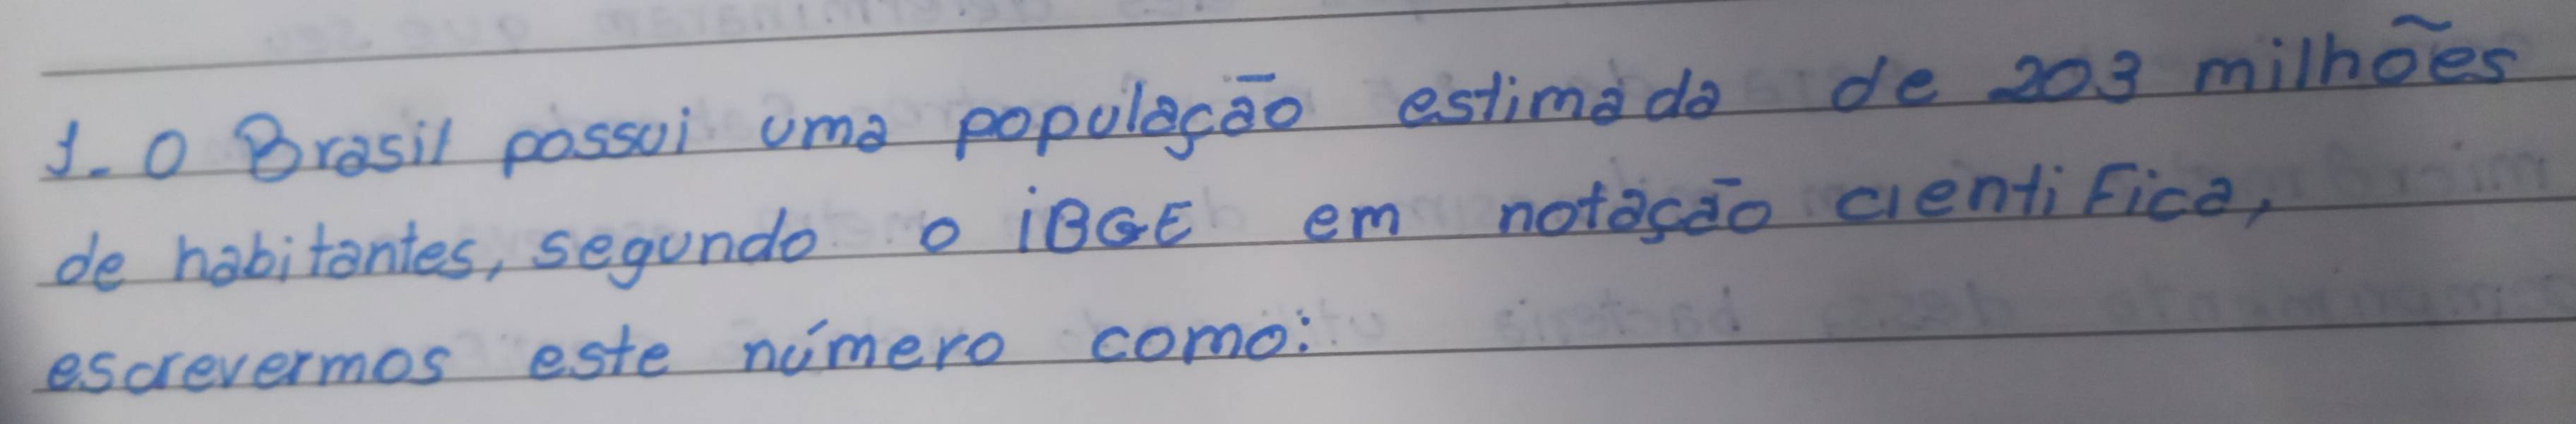 1. O Brasil possui uma população estimada de 203 milhões
de habitantes, segundo o iBGE em notação cientifica,
escrevermos este número como: